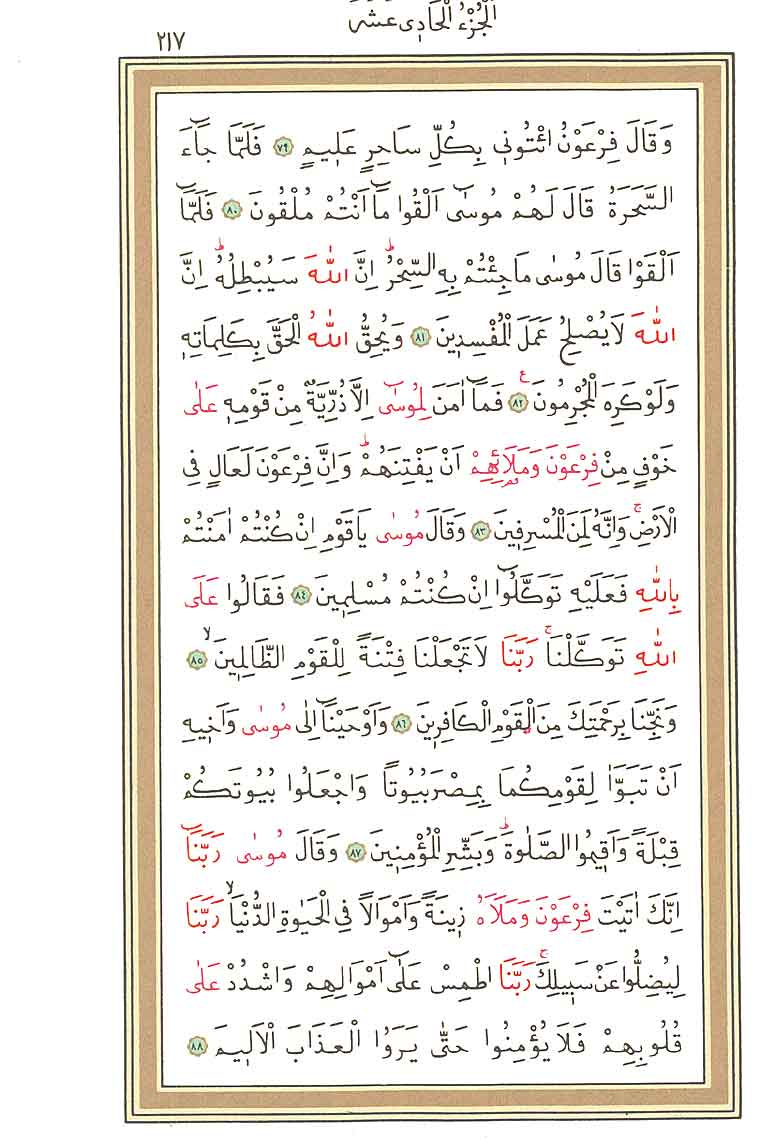 اَلْجُزْءُ الْحَادِى عَشَرَ
٢١٧
وَقَالَ فِرْعَوْنُ ائْتُونٖى بِكُلِّ سَاحِرٍ عَلٖيمٍ ﴿٧٩﴾ فَلَمَّا جَٓاءَ
السَّحَرَةُ قَالَ لَهُمْ مُوسٰٓى اَلْقُوا مَٓا اَنْتُمْ مُلْقُونَ ﴿٨٠﴾ فَلَمَّٓا
اَلْقَوْا قَالَ مُوسٰى مَا جِئْتُمْ بِهِ السِّحْرُۜ اِنَّ اللّٰهَ سَيُبْطِلُهُۜ اِنَّ
اللّٰهَ لَا يُصْلِحُ عَمَلَ الْمُفْسِدٖينَ ﴿٨١﴾ وَيُحِقُّ اللّٰهُ الْحَقَّ بِكَلِمَاتِهٖ
وَلَوْ كَرِهَ الْمُجْرِمُونَ ﴿٨٢﴾ فَمَٓا اٰمَنَ لِمُوسٰٓى اِلَّا ذُرِّيَّةٌ مِنْ قَوْمِهٖ عَلٰى
خَوْفٍ مِنْ فِرْعَوْنَ وَمَلَا۬ئِهِمْ اَنْ يَفْتِنَهُمْۜ وَاِنَّ فِرْعَوْنَ لَعَالٍ فِى
الْاَرْضِۚ وَاِنَّهُ لَمِنَ الْمُسْرِفٖينَ ﴿٨٣﴾ وَقَالَ مُوسٰى يَا قَوْمِ اِنْ كُنْتُمْ اٰمَنْتُمْ
بِاللّٰهِ فَعَلَيْهِ تَوَكَّلُٓوا اِنْ كُنْتُمْ مُسْلِمٖينَ ﴿٨٤﴾ فَقَالُوا عَلَى
اللّٰهِ تَوَكَّلْنَاۚ رَبَّنَا لَا تَجْعَلْنَا فِتْنَةً لِلْقَوْمِ الظَّالِمٖينَۙ ﴿٨٥﴾
وَنَجِّنَا بِرَحْمَتِكَ مِنَ الْقَوْمِ الْكَافِرٖينَ ﴿٨٦﴾ وَاَوْحَيْنَٓا اِلٰى مُوسٰى وَاَخٖيهِ
اَنْ تَبَوَّاٰ لِقَوْمِكُمَا بِمِصْرَ بُيُوتًا وَاجْعَلُوا بُيُوتَكُمْ
قِبْلَةً وَاَقٖيمُوا الصَّلٰوةَۜ وَبَشِّرِ الْمُؤْمِنٖينَ ﴿٨٧﴾ وَقَالَ مُوسٰى رَبَّنَٓا
اِنَّكَ اٰتَيْتَ فِرْعَوْنَ وَمَلَاَهُ زٖينَةً وَاَمْوَالًا فِى الْحَيٰوةِ الدُّنْيَاۙ رَبَّنَا
لِيُضِلُّوا عَنْ سَبٖيلِكَۚ رَبَّنَا اطْمِسْ عَلٰٓى اَمْوَالِهِمْ وَاشْدُدْ عَلٰى
قُلُوبِهِمْ فَلَا يُؤْمِنُوا حَتّٰى يَرَوُا الْعَذَابَ الْاَلٖيمَ ﴿٨٨﴾